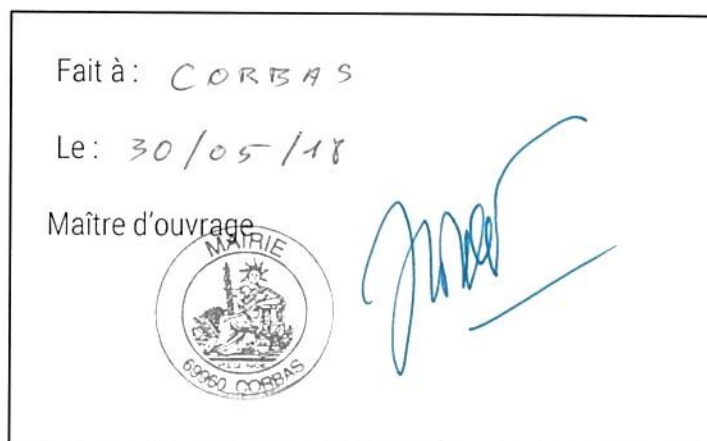 Fait à : CORBAS
Le : 30/05/18
Maître d'ouvrage
MAIRIE
69960 CORBAS